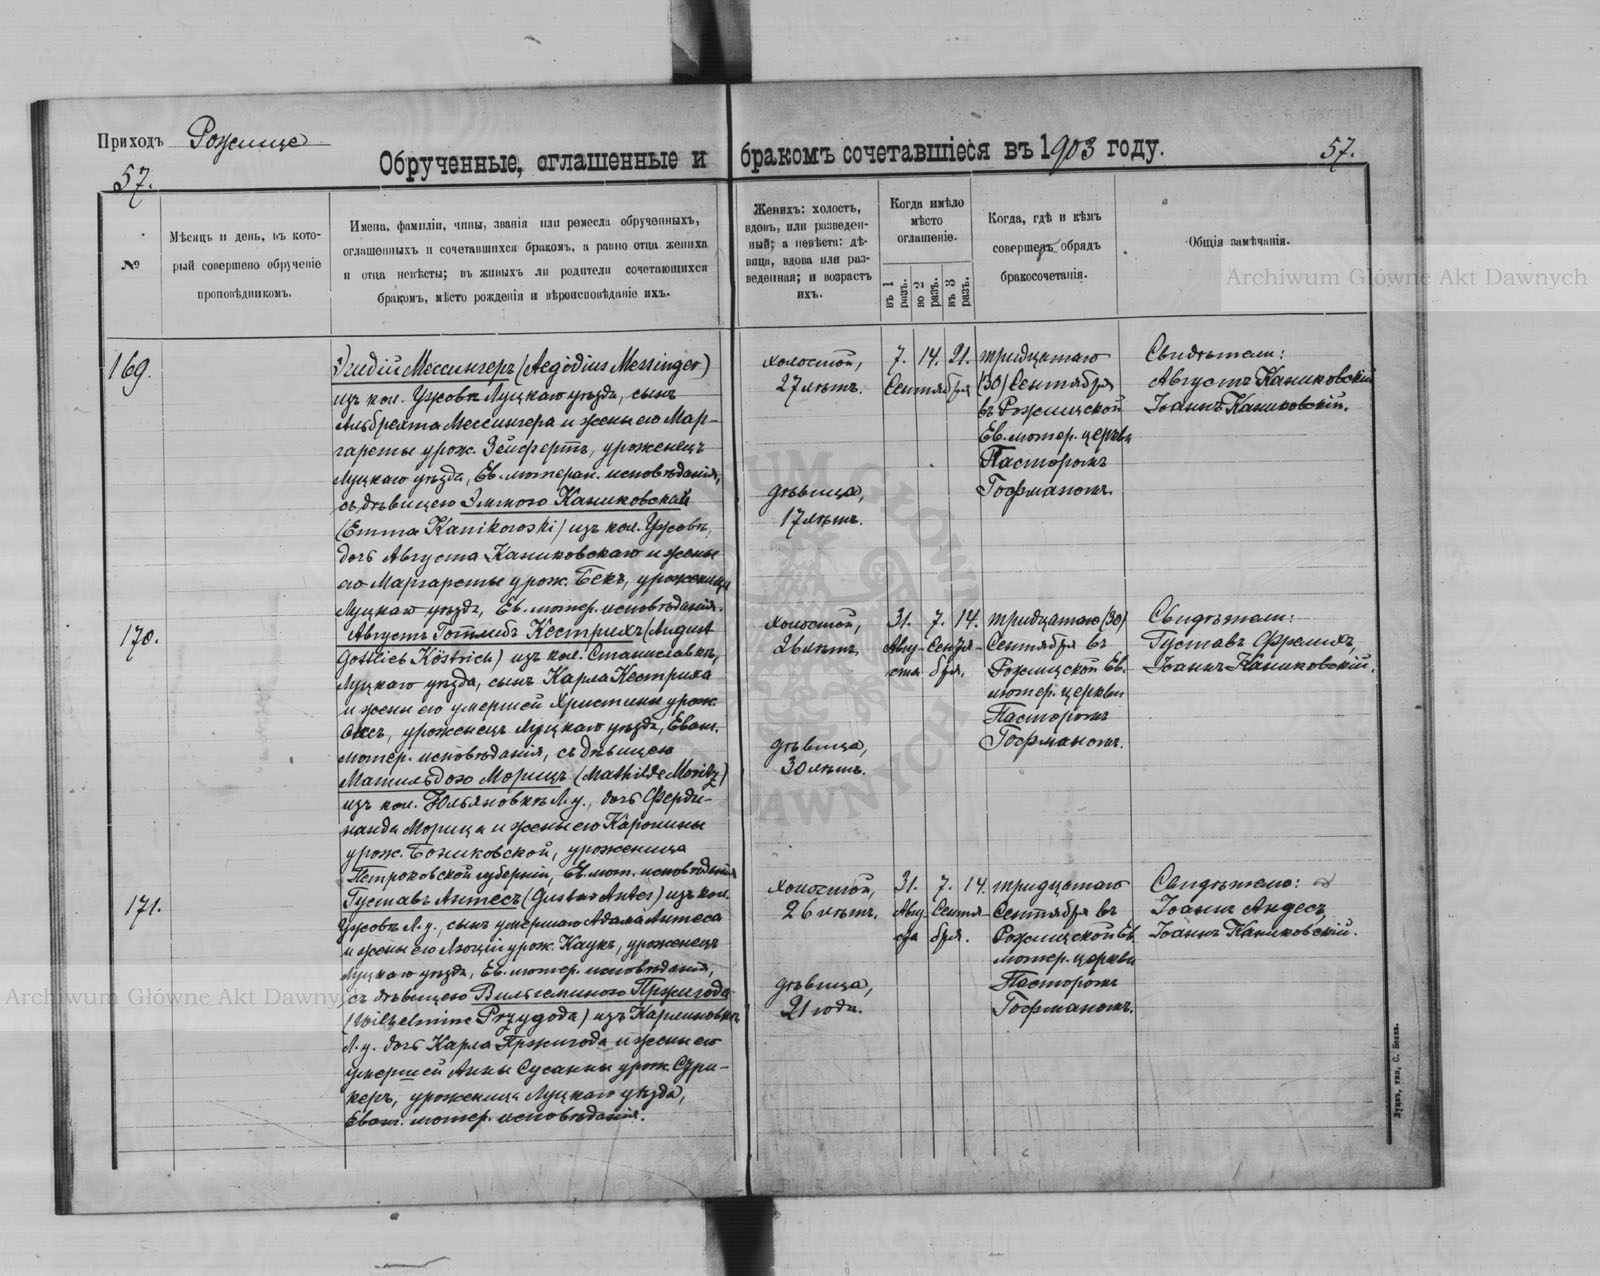 Приходъ Рожище
Обрученные, оглашенные и бракомъ сочетавшіеся въ 1903 году.
57.
57.
№
Мѣсяцъ и день, въ кото-
рый совершено обрученіе
проповѣдникомъ.
Имена, фамиліи, чины, званія или ремесла обрученныхъ,
оглашенныхъ и сочетавшихся бракомъ, а равно отца жениха
и отца невѣсты; въ живыхъ ли родители сочетающихся
бракомъ, мѣсто рожденія и вѣроисповѣданіе ихъ.
Женихъ: холостъ,
вдовъ, или разведен-
ный; а невѣста: дѣ-
вица, вдова или раз-
веденная; и возрастъ
ихъ.
Когда имѣло
мѣсто
оглашеніе.
въ 1 разъ.
во 2 разъ.
въ 3 разъ.
Когда, гдѣ и кѣмъ
совершенъ обрядъ
бракосочетанія.
Общія замѣчанія.
Archiwum Główne Akt Dawnych
169.
Эгидій Мессингеръ (Aegidius Messinger)
изъ кол. Ужовъ Луцкаго уѣзда, сынъ
Альбрехта Мессингера и жены его Мар-
гареты урож. Зейфертъ, уроженецъ
Луцкаго уѣзда, Ев. лютеран. исповѣданія,
съ дѣвицею Эммою Каниковской
(Emma Kanikowski) изъ кол. Ужовъ,
дочь Августа Каниковскаго и жены
его Маргареты урож. Бекъ, уроженица
Луцкаго уѣзда, Ев. лютер. исповѣданія.
холостой,
27 лѣтъ.
дѣвица,
17 лѣтъ.
7. 14. 21.
Сентября
тридцатаго
(30) Сентября
въ Рожищской
Ев. лютер. церкви
Пасторомъ
Гофманомъ.
Свидѣтели:
Августъ Каниковскій
Іоаннъ Каниковскій.
170.
Августъ Готлибъ Кестрихъ (August
Gottlieb Köstrich) изъ кол. Станиславкъ,
Луцкаго уѣзда, сынъ Карла Кестриха
и жены его умершей Христины урож.
уроженецъ Луцкаго уѣзда, Еванг.
лютер. исповѣданія, съ дѣвицею
Матильдою Морицъ (Mathilde Moritz)
изъ кол. Юльяновкъ Л. у., дочь Ферди-
нанда Морица и жены его Каролины
урож. Бониковской, уроженица
Петроковской губерніи, Ев. лют. исповѣданія
холостой,
26 лѣтъ.
дѣвица,
30 лѣтъ.
31. 7. 14.
Авгу- Сентя-
ста бря.
тридцатаго (30)
Сентября въ
Рожищской Ев.
лютер. церкви
Пасторомъ
Гофманомъ.
Свидѣтели:
Густавъ Фрелихъ,
Іоаннъ Каниковскій.
171.
Густавъ Антесъ (Gustav Antes) изъ кол.
Ужовъ Л. у., сынъ умершаго Адама Антеса
и жены его Люціи урож. Каукъ, уроженецъ
Луцкаго уѣзда, Ев. лютер. исповѣданія,
съ дѣвицею Вильгельминою Пржигода
(Wilhelmine Przygoda) изъ Карлиновкъ
Л. у. дочь Карла Пржигода и жены его
умершей Анны Сусанны урож. Стри-
керъ, уроженица Луцкаго уѣзда,
Еванг. лютер. исповѣданія.
холостой,
26 лѣтъ.
дѣвица,
21 года.
31. 7. 14.
Авгу- Сентя-
ста бря.
тридцатаго
Сентября въ
Рожищской Ев.
лютер. церкви
Пасторомъ
Гофманомъ.
Свидѣтели:
Іоаннъ Андесъ,
Іоаннъ Каниковскій.
Archiwum Główne Akt Dawnych